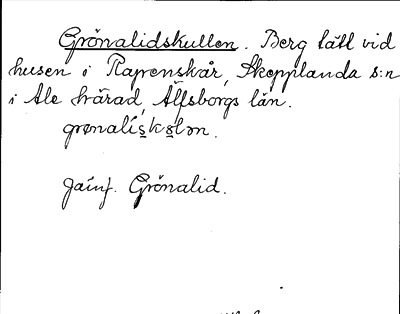 Grönalidskullen. Berg tätt vid
husen i Ramnskår, Skepplanda s:n
i Ale härad, Älfsborgs län.
grønalískølən.
Jämf. Grönalid.